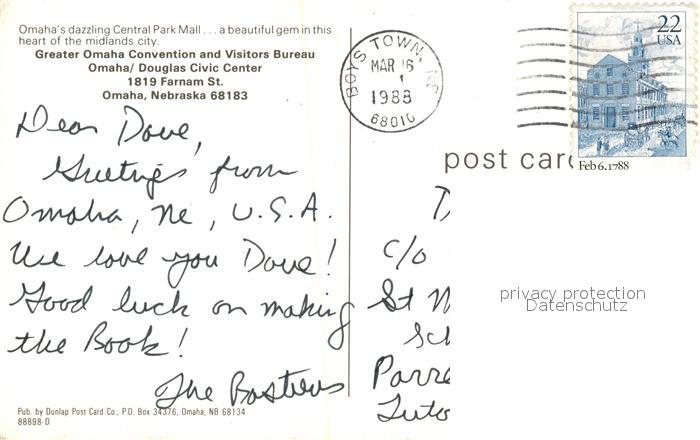 Omaha's dazzling Central Park Mall . . . a beautiful gem in this
heart of the midlands city.
Greater Omaha Convention and Visitors Bureau
Omaha/ Douglas Civic Center
1819 Farnam St.
Omaha, Nebraska 68183
BOYS TOWN, NE
MAR 16
1988
68010
22
USA
Feb 6, 1788
post card
Dear Dave,
Greetings from
Omaha, Ne, U.S.A.
We love you Dave!
Good luck on making
the Book!
The Bastiens
c/o
St M
Sch
Parre
Luto
privacy protection
Datenschutz
Pub. by Dunlap Post Card Co., P.O. Box 34376, Omaha, NB 68134
88898-D